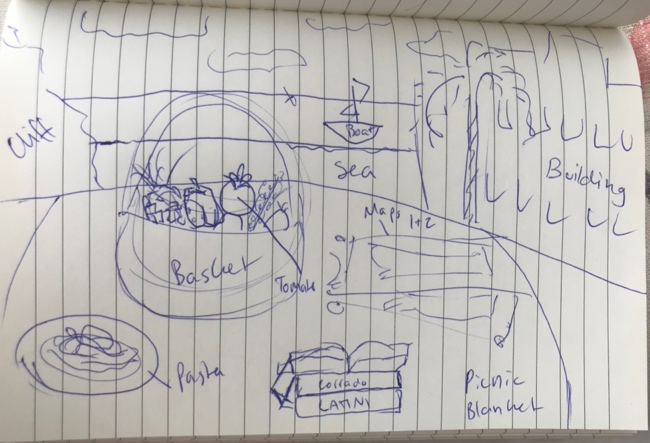 Cliff
Boat
Sea
Building
Maps 1+2
Basket
Tomato
Pasta
Corrado
LATINI
Picnic
Blanket